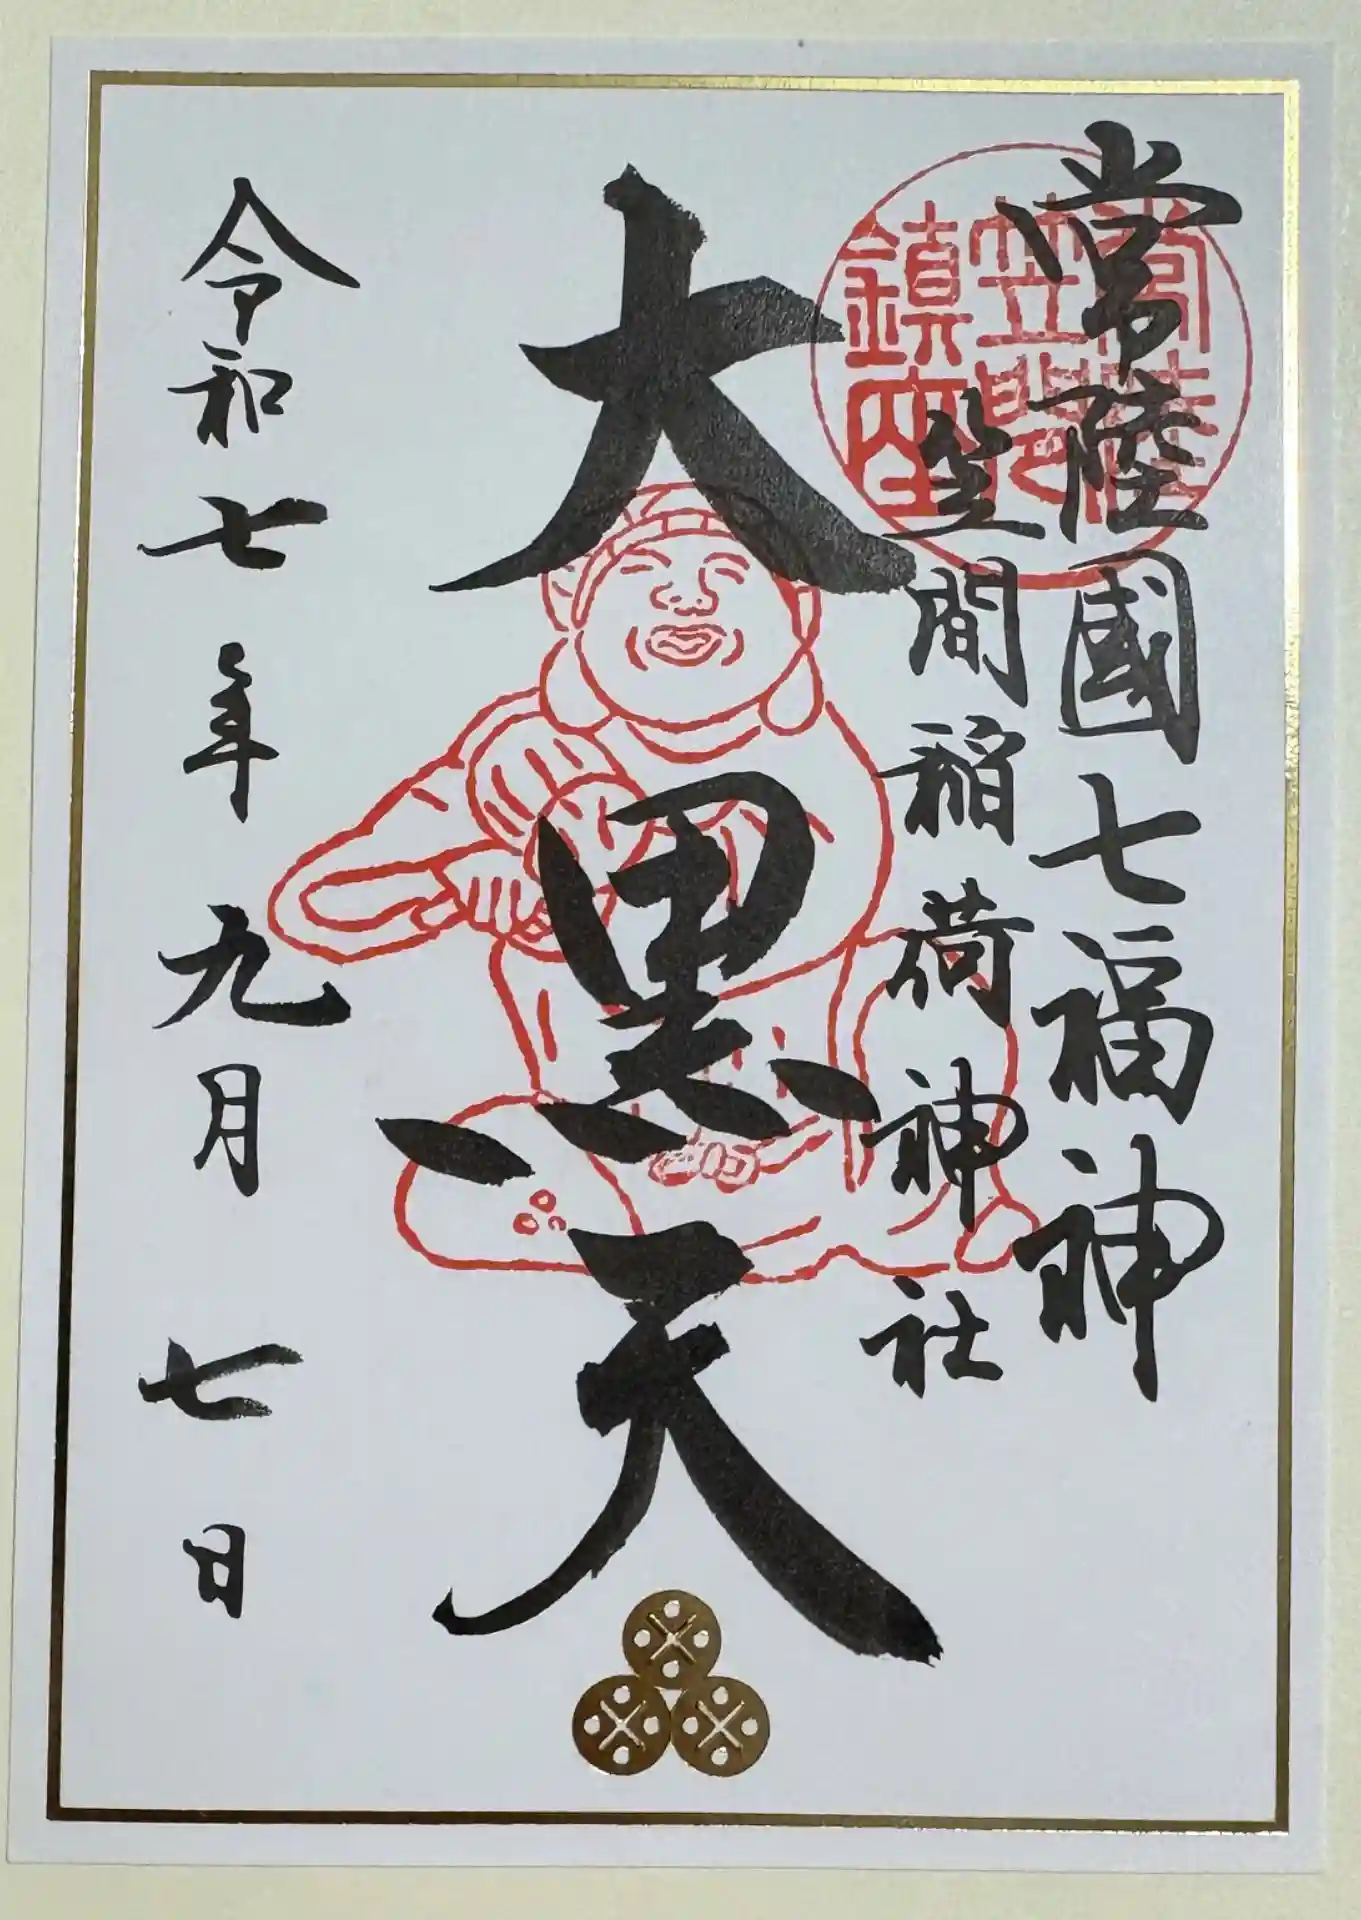 常陸國七福神
笠間稲荷神社
常陸
笠間
鎮座
大黒天
令和七年九月七日